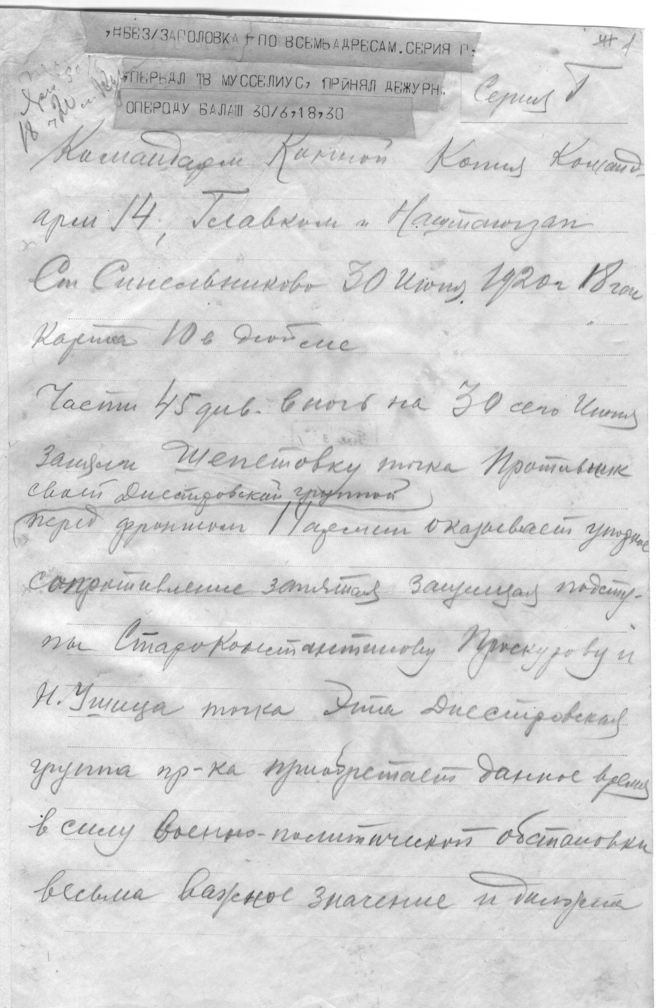 ,НБЕЗ/ЗАГОЛОВКА † ПО ВСЕМЬАДРЕСАМ.СЕРИЯ Г.
,ПЕРЬДАЛ ТВ МУССЕЛИУС, ПРИНЯЛ ДЕЖУРН.
ОПЕРОДУ БАЛАШ 30/6,18,30
1
Серия Г
18 ч
Командарм Конной Копия Команд-
арм 14, Главком и Наштаюгзап
Ст Синельниково 30 Июня 1920г 18 час
Карта 10 в дюйме
Части 45 див. в ночь на 30 сего Июня
заняли Шепетовку точка Противник
своей Днестровской группой
перед фронтом 14 армии оказывает упорное
сопротивление запятая защищая подсту-
пы Староконстантинову Проскурову и
Н. Ушица точка Эта Днестровская
группа пр-ка приобретает данное время
в силу военно-политической обстановки
весьма важное значение и должна